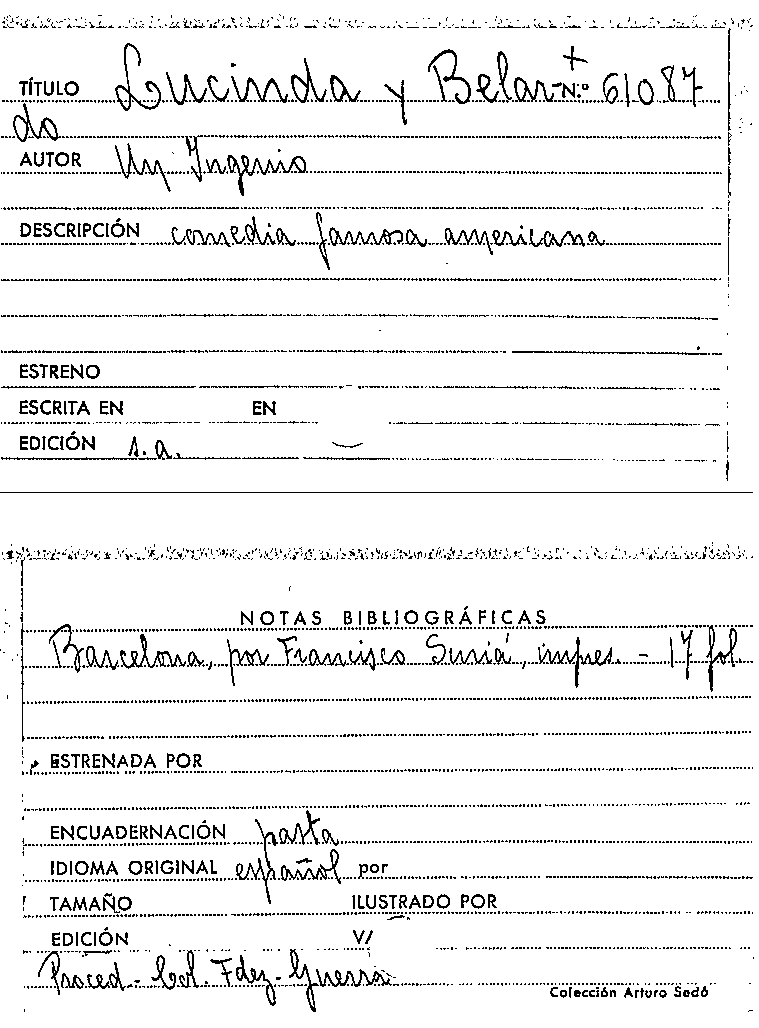 TÍTULO Lucinda y Belar- N.º 61087
do
AUTOR Un Ingenio
DESCRIPCIÓN comedia famosa americana
ESTRENO
ESCRITA EN EN
EDICIÓN s.a.
NOTAS BIBLIOGRÁFICAS
Barcelona, por Francisco Suriá, impres. - 17 fol.
ESTRENADA POR
ENCUADERNACIÓN pasta
IDIOMA ORIGINAL español por
TAMAÑO ILUSTRADO POR
EDICIÓN V/
Proced.- Col. Fdez-Guerra
Colección Arturo Sedó